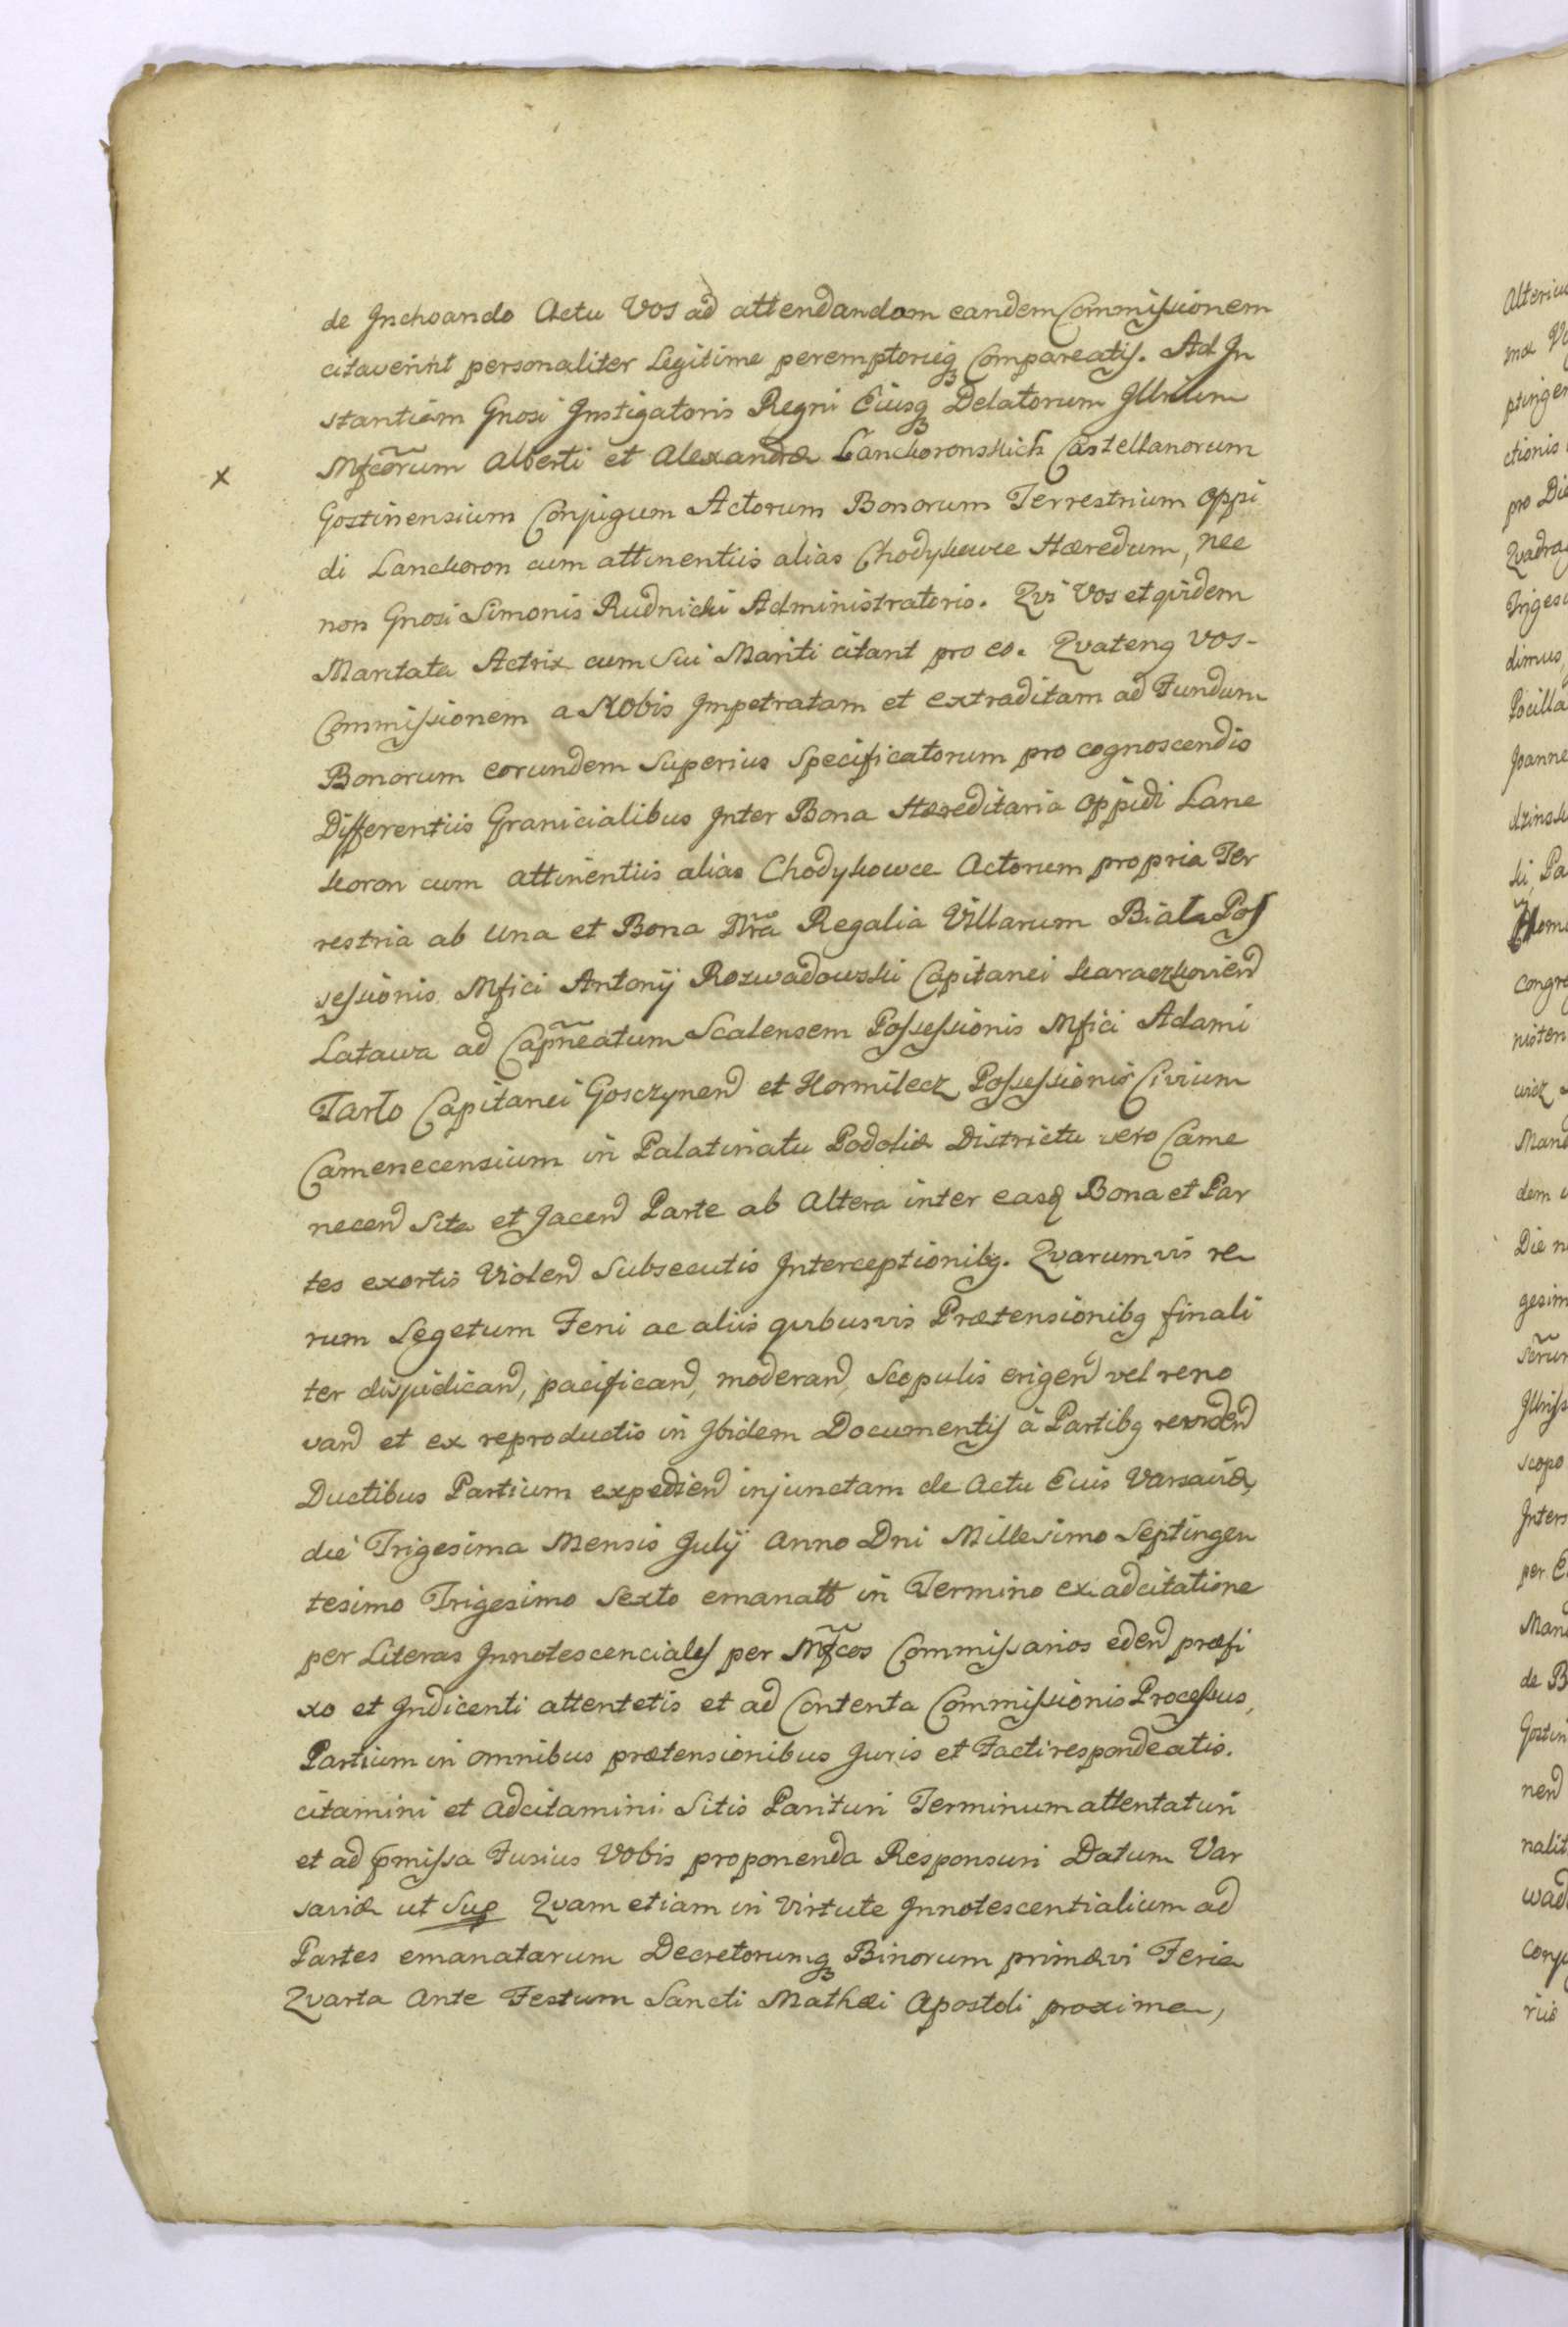 de Inchoando Actu Vos ad attendandam eandem Commissionem
citaverint personaliter Legitime peremptorieq₃ Compareatis. Ad In
stantiam Gnosi Instigatoris Regni Eiusq₃ Delatorum Illrium
Mfcorum Alberti et Alexandræ Lanckoronskich Castellanorum
x
Gostinensium Conjugum Actorum Bonorum Terrestrium Oppi
di Lanckoron cum attinentiis alias Chodykowce Hæredum, nec
non Gnosi Simonis Rudnicki Administratoris. Qvi Vos et qvidem
Maritata Actrix cum Sui Mariti citant pro eo. Qvateng Vos-
Commissionem a Nobis Impetratam et extraditam ad Fundum
Bonorum eorundem Superius Specificatorum pro cognoscendis
Differentiis Granicialibus Inter Bona Hæreditaria Oppidi Lanc
koron cum attinentiis alias Chodykowce Actorum propria Ter
restria ab Una et Bona Nra Regalia Villarum Biała Pos
sessionis Mfici Antonij Rozwadowski Capitanei karaczkoviend
Latawa ad Capneatum Scalensem Possessionis Mfici Adami
Tarło Capitanei Gosczynend et Hormilecz Possessionis Civium
Camenecensium in Palatinatu Podoliæ Districtu vero Came
necend Sita et Jacend Parte ab Altera inter easq Bona et Par
tes exortis Violend Subsecutis Interceptionibg. Qvarumvis re
rum Segetum Feni ac aliis qvibusvis Prætensionibg finali
ter disjudicand, pacificand, moderand, Scopulis erigend vel reno
vand et ex reproductis in Ibidem Documentis à Partibg revidend
Ductibus Partium expediend injunctam de Actu Euis Varsaviæ,
die Trigesima Mensis Julij Anno Dni Millesimo Septingen
tesimo Trigesimo Sexto emanatt in Termino ex adcitatione
per Literas Innotescenciales per Mfcos Commissarios edend præfi
xo et Indicenti attentetis et ad Contenta Commissionis Processus,
Partium in omnibus prætensionibus Juris et Facti respondeatis.
citamini et adcitamini Sitis Parituri Terminum attentaturi
et ad pmissa Fusius Vobis proponenda Responsuri Datum Var
saviæ ut Sup Qvam etiam in Virtute Innotescentialium ad
Partes emanatarum Decretorumq₃ Binorum primævi Feria
Qvarta Ante Festum Sancti Mathæi Apostoli proxima,